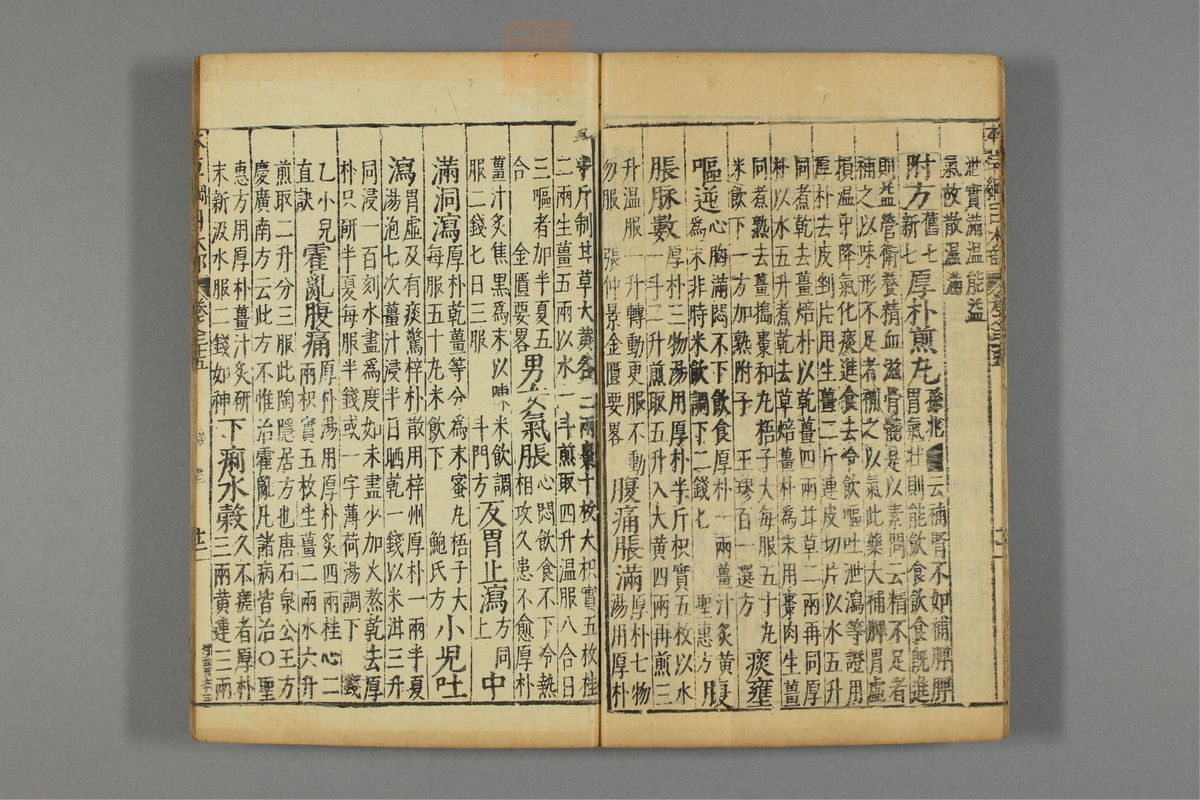 本草綱目木部 卷之三十五
泄實滿溫能益
氣故散濕滿
附方 舊七 新七 厚朴煎丸 孫兆云補腎不如補脾脾
胃氣壯則能飲食飲食旣進
則益營衛養精血滋骨髓是以素問云精不足者
補之以味形不足者補之以氣此藥大補脾胃虛
損溫中降氣化痰進食去冷飲嘔吐泄瀉等證用
厚朴去皮剉片用生薑二斤連皮切片以水五升
同煮乾去薑焙朴以乾薑四兩甘草二兩再同厚
朴以水五升煮乾去草焙薑朴爲末用棗肉生薑
同煮熟去薑擣棗和丸梧子大每服五十丸
米飲下一方加熟附子 王璆百一選方 痰壅
嘔逆 心胸滿悶不下飲食厚朴一兩薑汁炙黃
爲末非時米飲調下二錢匕 聖惠方 腹
脹脉數 厚朴三物湯用厚朴半斤枳實五枚以水
一斗二升煎取五升入大黃四兩再煎三
升溫服一升轉動更服不動
勿服 張仲景金匱要畧 腹痛脹滿 厚朴七物
湯用厚朴
半斤制甘草大黃各三兩棗十枚大枳實五枚桂
二兩生薑五兩以水一斗煎取四升溫服八合日
三嘔者加半夏五
合 金匱要畧 男女氣脹 心悶飲食不下冷熱
相攻久患不愈厚朴
薑汁炙焦黑爲末以陳米飲調
服二錢匕日三服 斗門方 反胃止瀉 方同上 中
滿洞瀉 厚朴乾薑等分爲末蜜丸梧子大
每服五十丸米飲下 鮑氏方 小兒吐
瀉 胃虛及有痰驚梓朴散用梓州厚朴一兩半夏
湯泡七次薑汁浸半日晒乾一錢以米泔三升
同浸一百刻水盡爲度如未盡少加火熬乾去厚
朴只研半夏每服半錢或一字薄荷湯調下 錢
乙小兒
直訣 霍亂腹痛 厚朴湯用厚朴炙四兩桂心二
兩枳實五枚生薑二兩水六升
煎取二升分三服此陶隱居方也唐石泉公王方
慶廣南方云此方不惟治霍亂凡諸病皆治○聖
惠方用厚朴薑汁炙研
末新汲水服二錢如神 下痢水穀 久不瘥者厚朴
三兩黃連三兩
本草綱目木部 卷之三十五